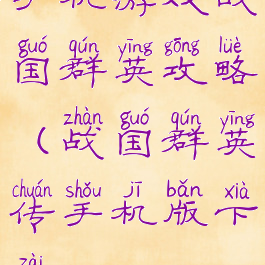 guó qún yīng gōng lüè
国群英攻略
zhàn guó qún yīng
(战国群英
chuán shǒu jī bǎn xià
传手机版下
zài